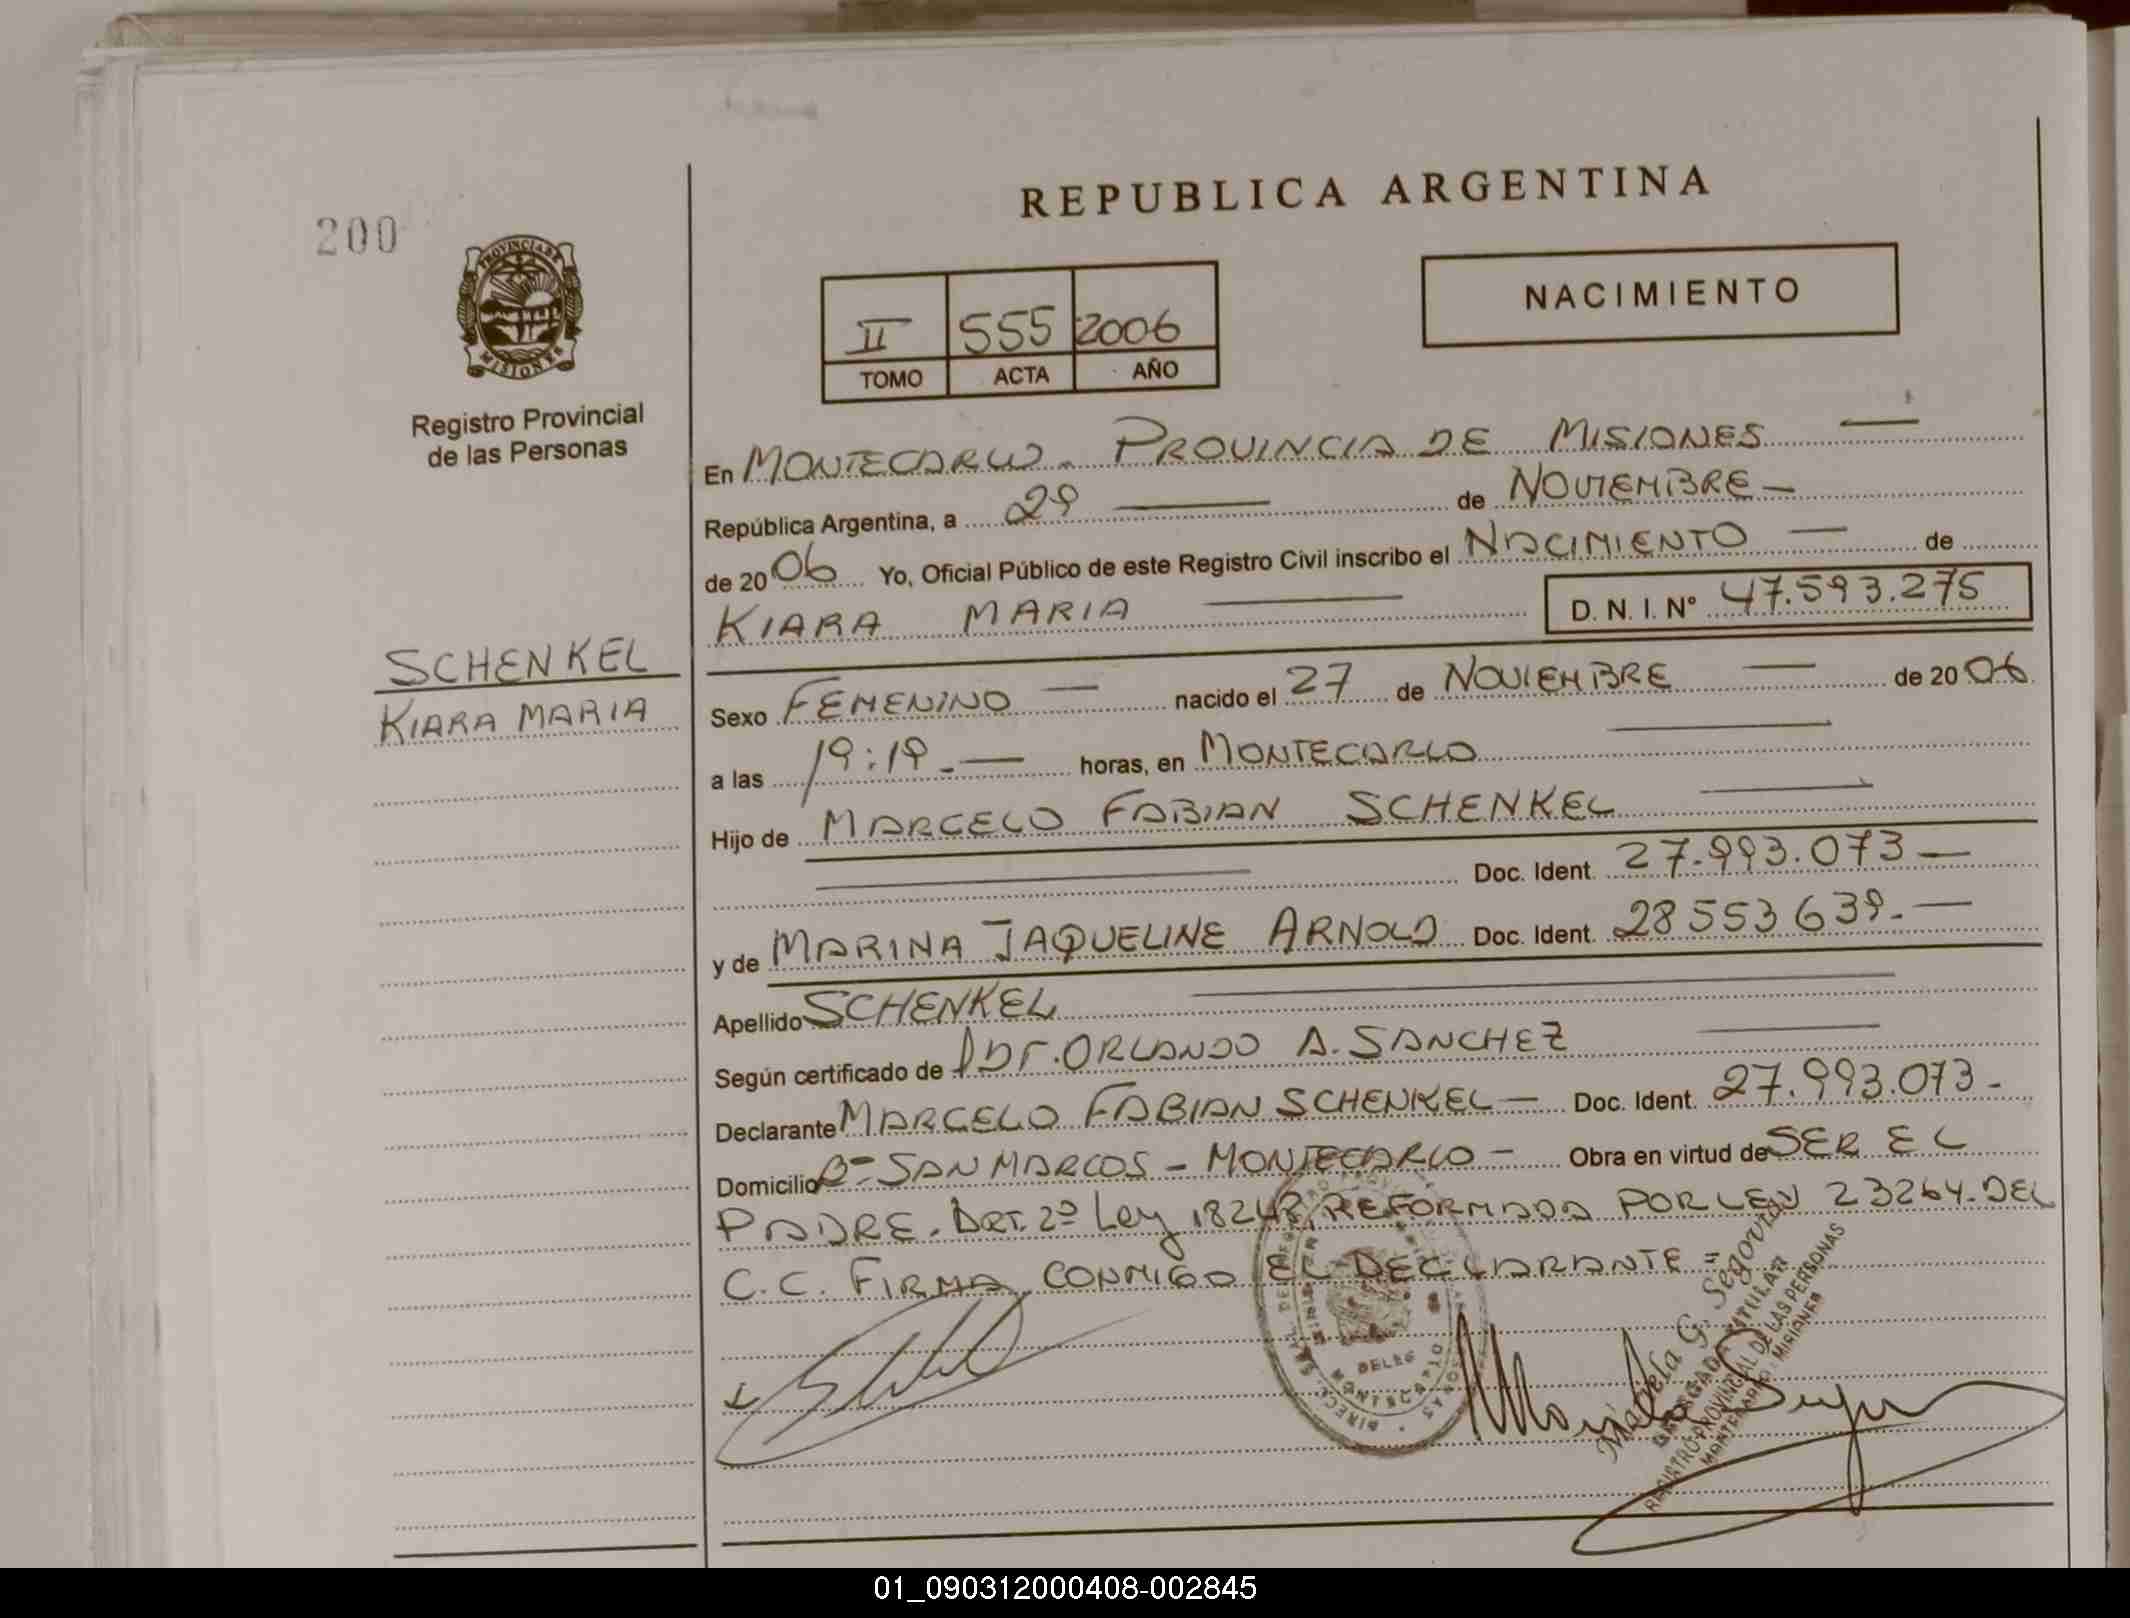 200
PROVINCIA DE
MISIONES
Registro Provincial
de las Personas
SCHENKEL
KIARA MARIA
REPUBLICA ARGENTINA
II 555 2006
TOMO ACTA AÑO
NACIMIENTO
En MONTECARLO. PROVINCIA DE MISIONES
República Argentina, a 29 de NOVIEMBRE
de 2006 Yo, Oficial Público de este Registro Civil inscribo el NACIMIENTO de
KIARA MARIA D. N. I. N° 47.593.275
Sexo FEMENINO nacido el 27 de NOVIEMBRE de 2006
a las 19:19.- horas, en MONTECARLO
Hijo de MARCELO FABIAN SCHENKEL
Doc. Ident. 27.993.073
y de MARINA JAQUELINE ARNOLD Doc. Ident. 28553639.-
Apellido SCHENKEL
Según certificado de Dr. ORLANDO A. SANCHEZ
Declarante MARCELO FABIAN SCHENKEL - Doc. Ident. 27.993.073-
Domicilio Bº- SAN MARCOS - MONTECARLO - Obra en virtud de SER EL
PADRE. ART. 2º Ley 18248 REFORMADA POR LEY 23264. DEL
C.C. FIRMA CONMIGO EL DECLARANTE =
DELEG
MONTECARLO
Mariela G. Segovia
DELEGADA TITULAR
REGISTRO PROVINCIAL DE LAS PERSONAS
MONTECARLO - MISIONES
01_090312000408-002845